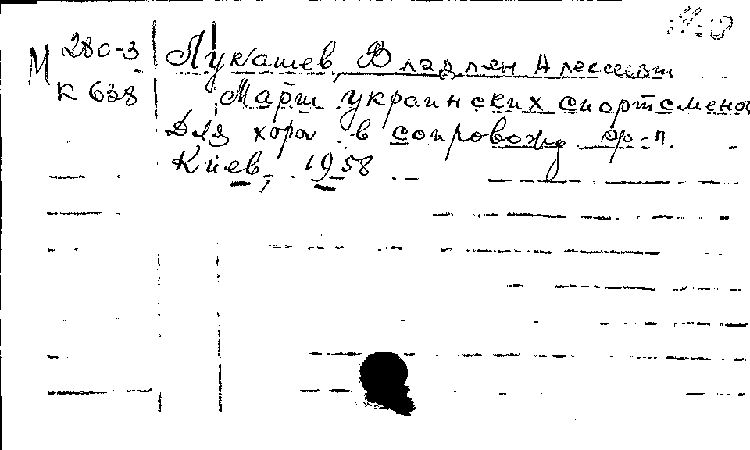 М 280-3
К 638
Лукашев, Владлен Алексеев
Марш украинских спортсмено
Для хора в сопровожд ф-п.
Киев, 1958